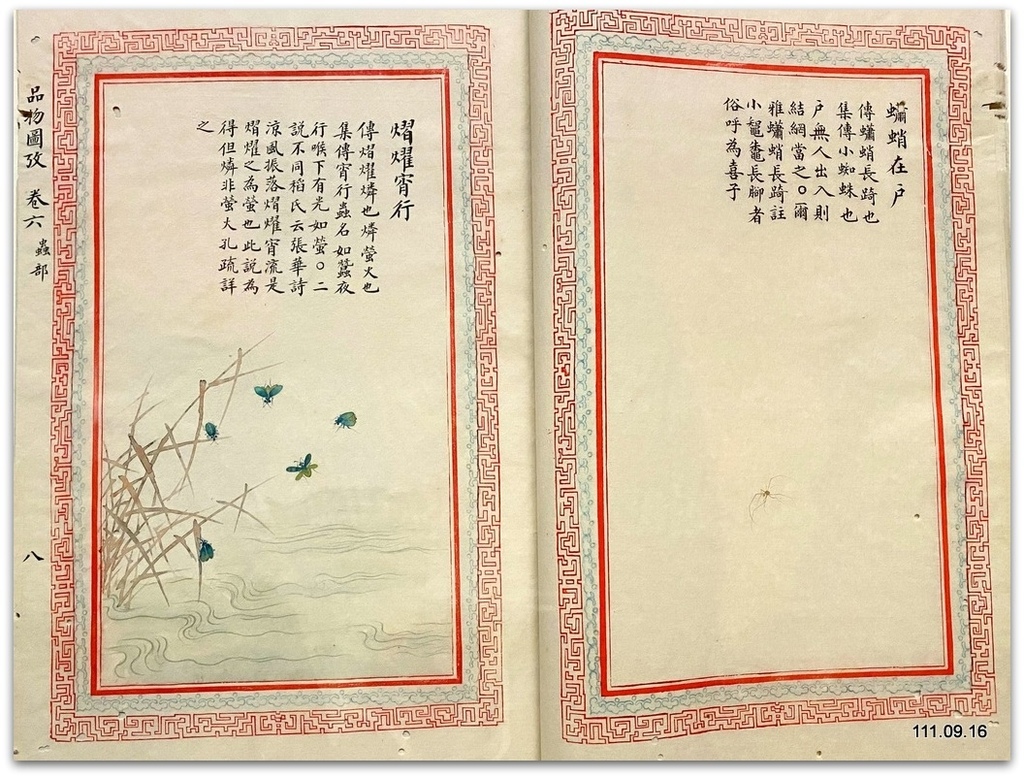 蠨蛸在戶
傳蠨蛸長踦也
集傳小蜘蛛也
戶無人出入則
結網當之○爾
雅蠨蛸長踦註
小鼅鼄長腳者
俗呼為喜子
熠燿宵行
傳熠燿燐也燐螢火也
集傳宵行蟲名如蠶夜
行喉下有光如螢○二
說不同稻氏云張華詩
涼風振落熠燿宵流是
熠燿之為螢也此說為
得但燐非螢火孔疏詳
之
品物圖攷 卷六 蟲部
八
111.09.16